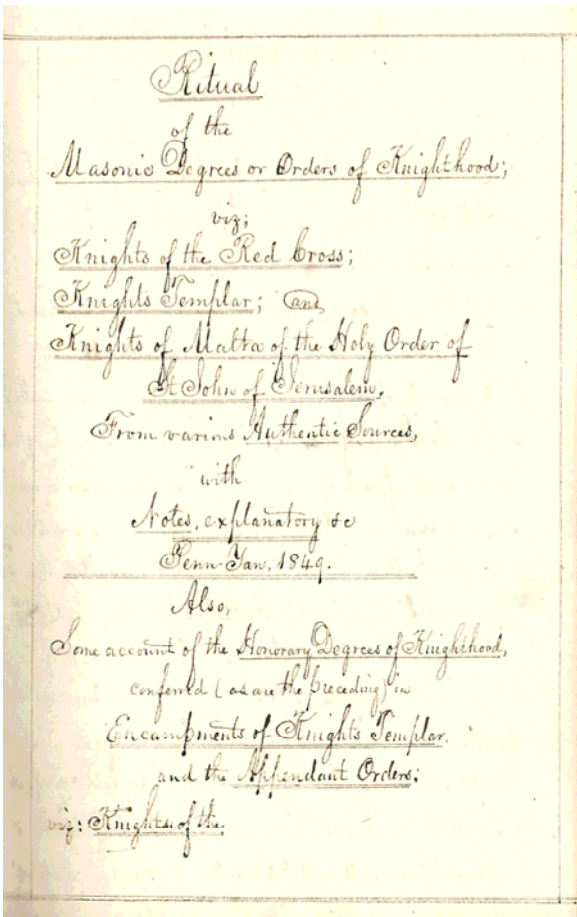 Ritual
of the
Masonic Degrees or Orders of Knighthood;
viz;
Knights of the Red Cross;
Knights Templar; and
Knights of Malta of the Holy Order of
St John of Jerusalem,
From various Authentic Sources,
with
Notes, explanatory &c
Penn-Yan, 1849.
Also,
Some account of the Honorary Degrees of Knighthood,
conferred (as are the preceding) in
Encampments of Knights Templar,
and the Appendant Orders;
viz: Knights of the